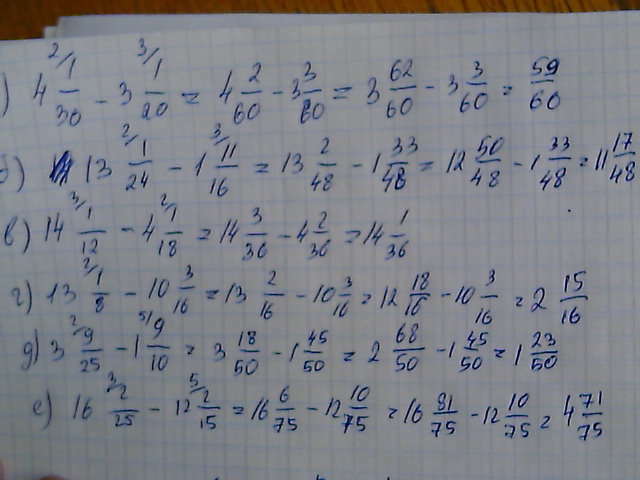 ) 4 2/ 1/30 - 3 3/ 1/20 = 4 2/60 - 3 3/60 = 3 62/60 - 3 3/60 = 59/60
б) 13 2/ 1/24 - 1 3/ 11/16 = 13 2/48 - 1 33/48 = 12 50/48 - 1 33/48 = 11 17/48
в) 14 3/ 1/12 - 4 2/ 1/18 = 14 3/36 - 4 2/36 = 14 1/36
г) 13 2/ 1/8 - 10 3/16 = 13 2/16 - 10 3/16 = 12 18/16 - 10 3/16 = 2 15/16
д) 3 2/ 9/25 - 1 5/ 9/10 = 3 18/50 - 1 45/50 = 2 68/50 - 1 45/50 = 1 23/50
е) 16 3/ 2/25 - 12 5/ 2/15 = 16 6/75 - 12 10/75 = 16 81/75 - 12 10/75 = 4 71/75